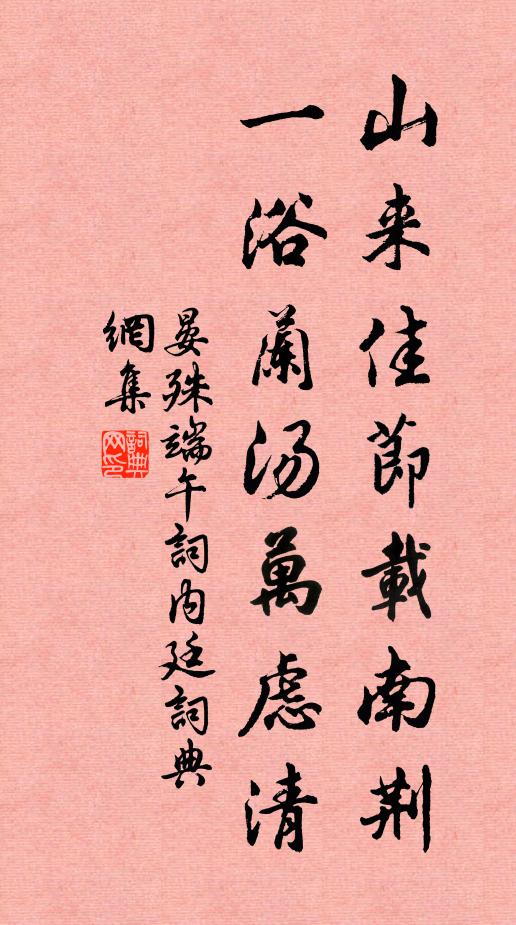 山来佳節載南荆
一浴蘭湯萬慮清
晏殊端午詞内廷詞典
網集
詞典網印